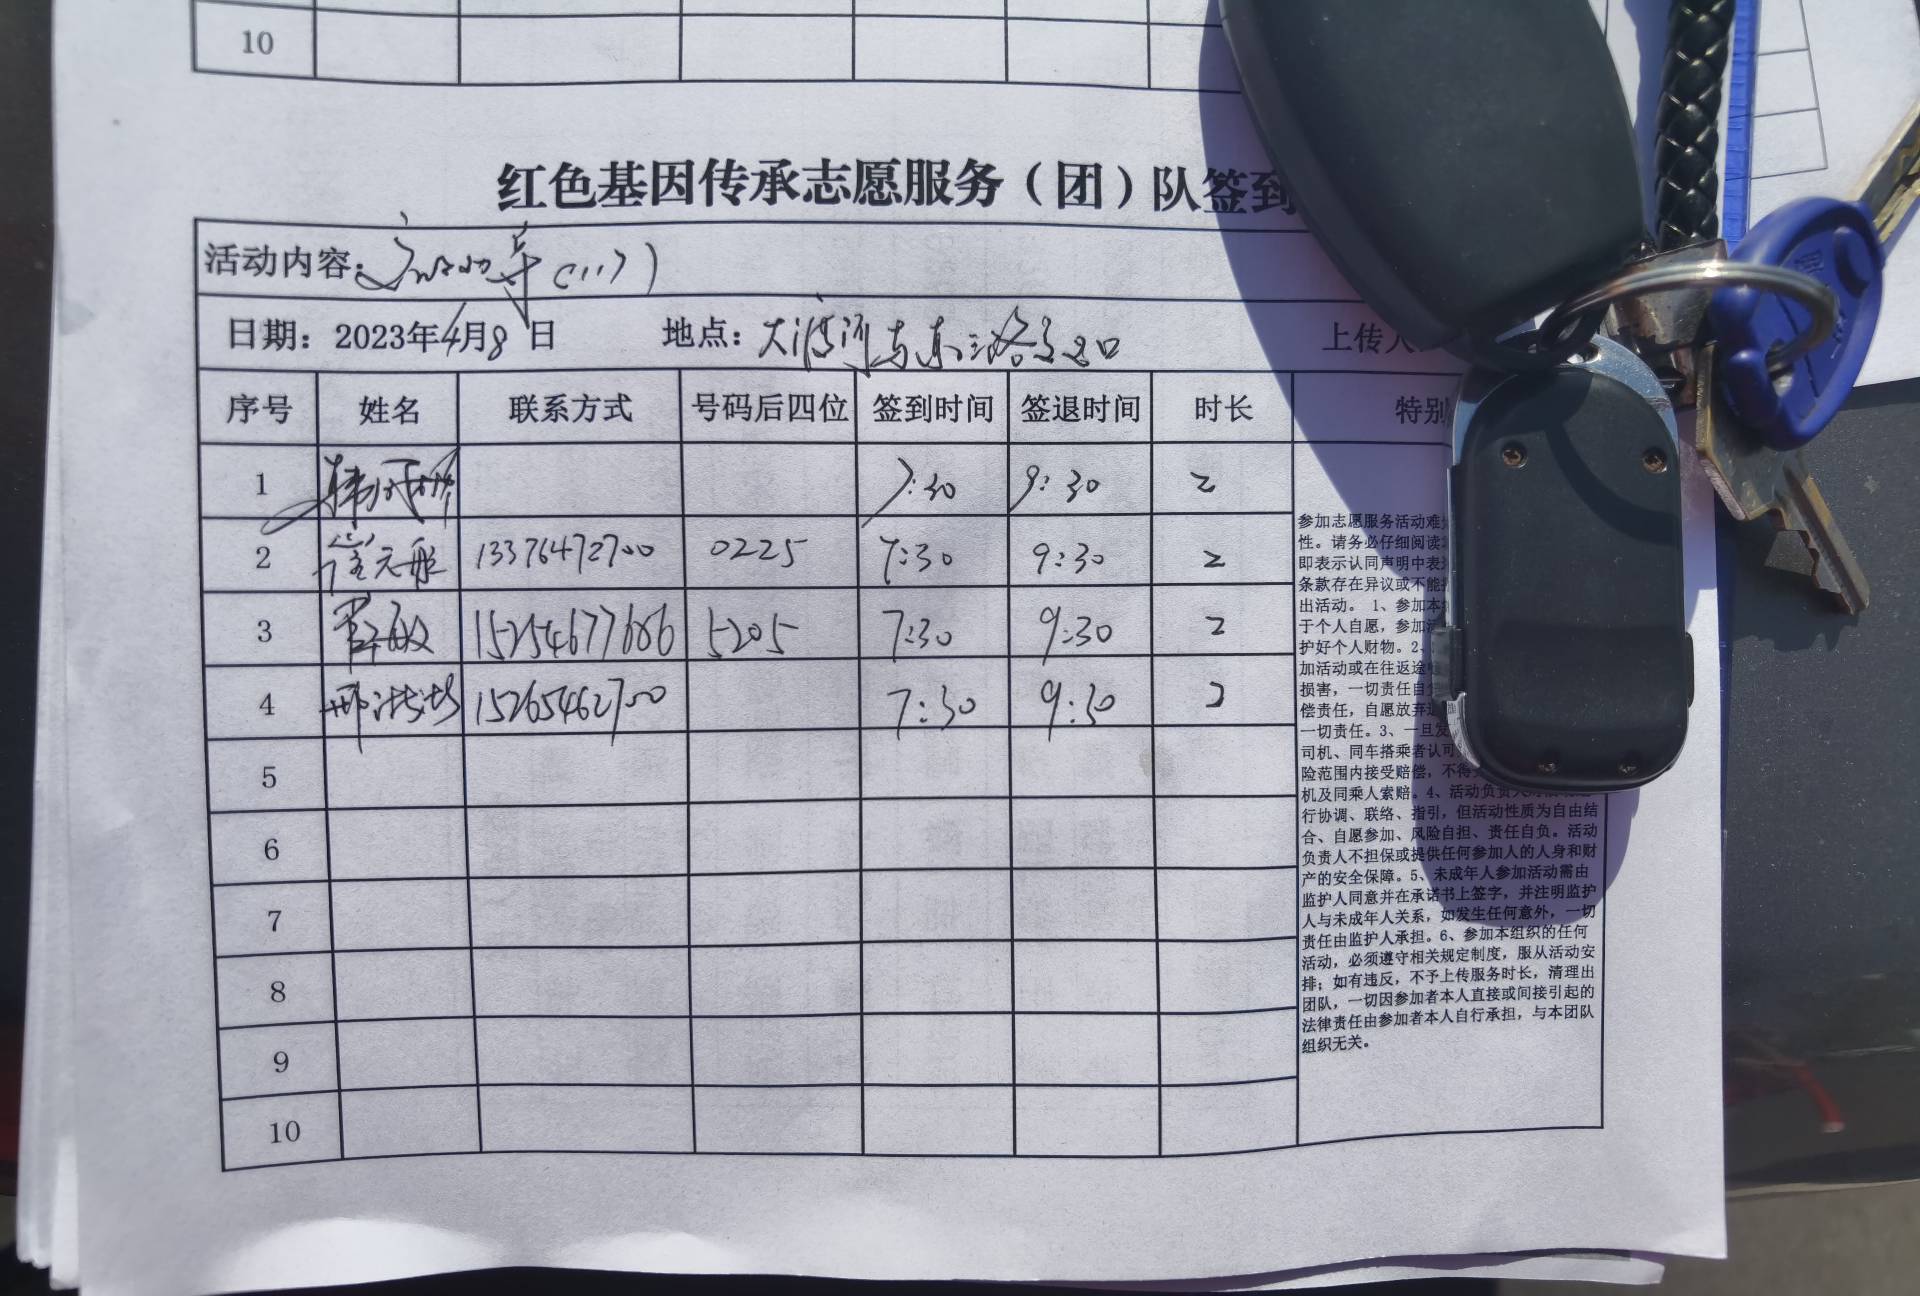 10
红色基因传承志愿服务（团）队签到
活动内容：
日期：2023年4月8日 地点：大 上传人
序号 姓名 联系方式 号码后四位 签到时间 签退时间 时长 特别
1 7:30 9:30 2
2 崔元彤 13376472700 0225 7:30 9:30 2
3 敏 15254677686 5205 7:30 9:30 2
4 邢 15265462700 7:30 9:30 2
5
6
7
8
9
10
参加志愿服务活动难
性。请务必仔细阅读
即表示认同声明中表
条款存在异议或不能
出活动。 1、参加本
于个人自愿，参加
护好个人财物。2、
加活动或在往返途
损害，一切责任自
偿责任，自愿放弃
一切责任。3、一旦发
司机、同车搭乘者认可
险范围内接受赔偿，不得
机及同乘人索赔。4、活动负责人
行协调、联络、指引，但活动性质为自由结
合、自愿参加、风险自担、责任自负。活动
负责人不担保或提供任何参加人的人身和财
产的安全保障。5、未成年人参加活动需由
监护人同意并在承诺书上签字，并注明监护
人与未成年人关系，如发生任何意外，一切
责任由监护人承担。6、参加本组织的任何
活动，必须遵守相关规定制度，服从活动安
排；如有违反，不予上传服务时长，清理出
团队，一切因参加者本人直接或间接引起的
法律责任由参加者本人自行承担，与本团队
组织无关。